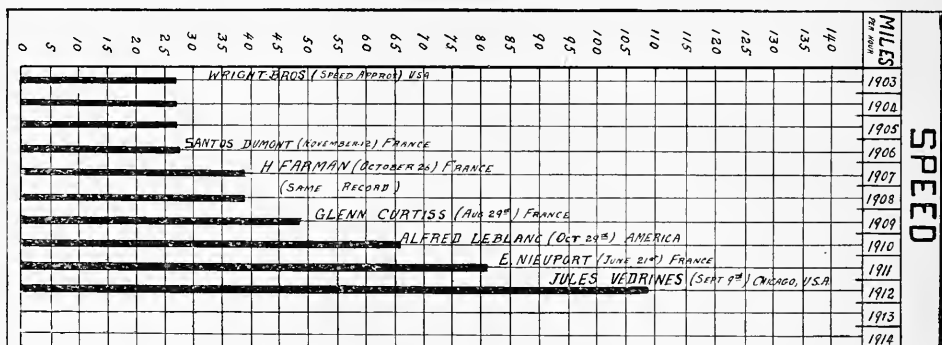 0 5 10 15 20 25 30 35 40 45 50 55 60 65 70 75 80 85 90 95 100 105 110 115 120 125 130 135 140 MILES PER HOUR
SPEED
WRIGHT BROS (SPEED APPROX) USA 1903
1904
1905
SANTOS DUMONT (NOVEMBER 12) FRANCE 1906
H FARMAN (OCTOBER 26) FRANCE 1907
(SAME RECORD) 1908
GLENN CURTISS (AUG 29TH) FRANCE 1909
ALFRED LEBLANC (OCT 29TH) AMERICA 1910
E. NIEUPORT (JUNE 21ST) FRANCE 1911
JULES VEDRINES (SEPT 9TH) CHICAGO, U.S.A. 1912
1913
1914